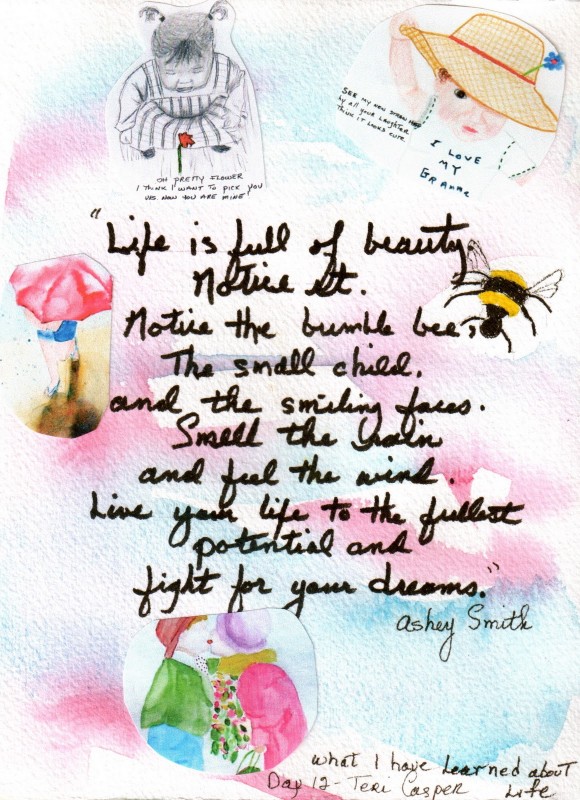 OH PRETTY FLOWER
I THINK I WANT TO PICK YOU
YES NOW YOU ARE MINE!
SEE MY NEW STRAW HAT
by ALL YOUR LAUGHTER
THINK IT LOOKS CUTE
I LOVE
MY
GRAMMA
"Life is full of beauty.
Notice it.
Notice the bumble bee,
The small child,
and the smiling faces.
Smell the rain
and feel the wind.
Live your life to the fullest
potential and
fight for your dreams."
Ashey Smith
what I have learned about
Life
Day 12 - Teri Casper